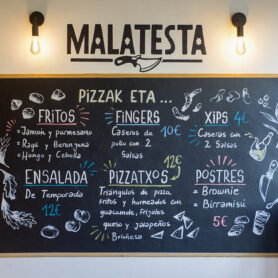 MALATESTA
PiZZAK ETA ...
FRiTOS
- Jamón y parmesano
- Ragú y Berenjena
- Hongo y Cebolla
FiNGERS
Caseros de 10€
pollo con 2
Salsas
XiPS 4€
Caseras con
2 Salsas
ENSALADA
De Temporada
12€
PiZZATXOS 12€
Triángulos de pizza,
fritos y horneados con
guacamole, frijoles
queso y jalapeños
Boloñesa
POSTRES
- Brownie
- Birramisú
5€